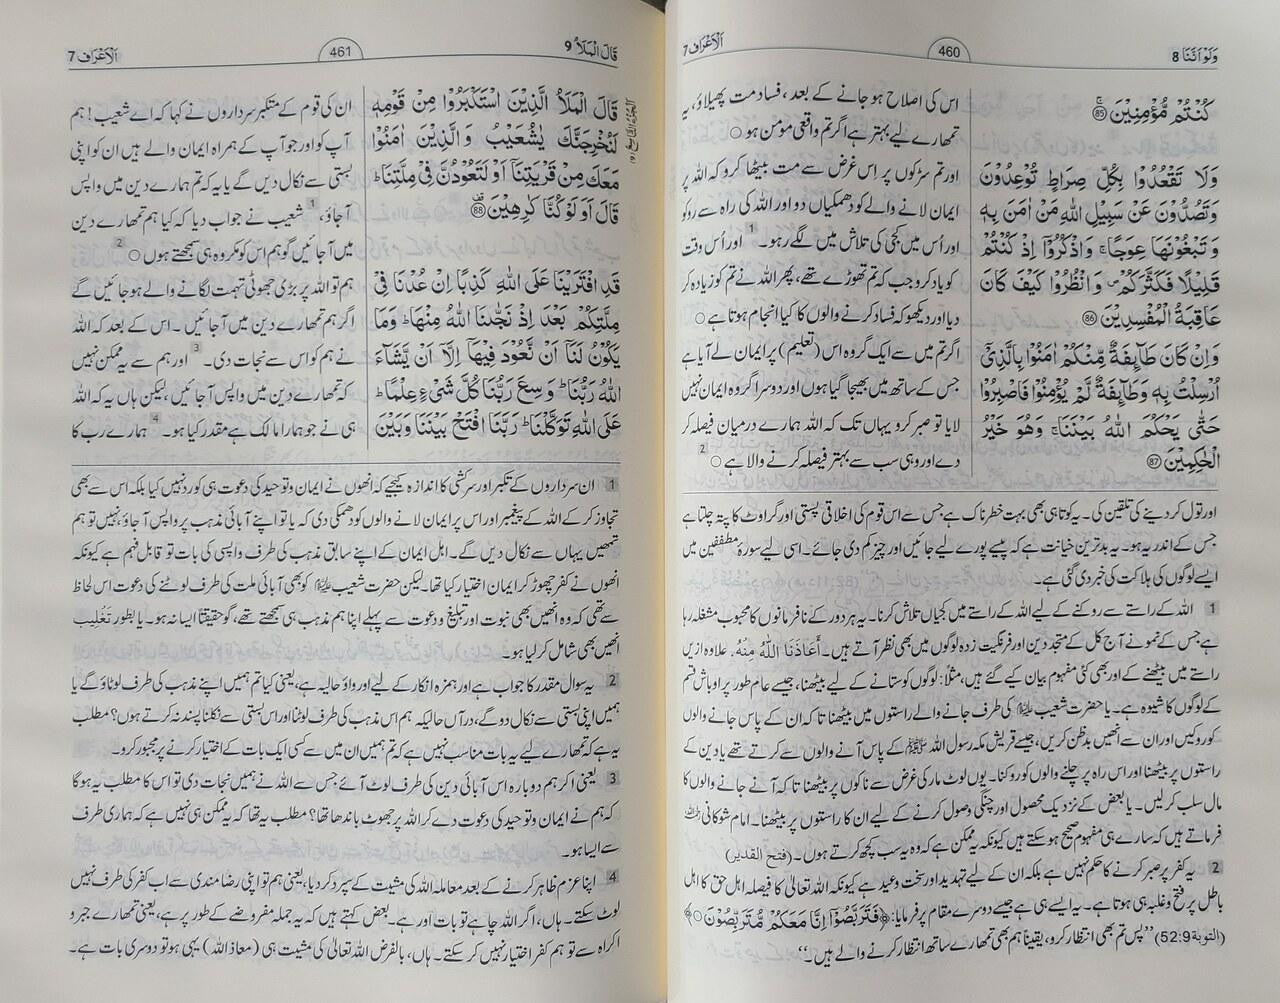 وَلَوْ اَنَّنَا 8
460
اَلْاَعْرَاف 7
كُنْتُمْ مُّؤْمِنِيْنَ ۝85
وَلَا تَقْعُدُوْا بِكُلِّ صِرَاطٍ تُوْعِدُوْنَ
وَتَصُدُّوْنَ عَنْ سَبِيْلِ اللّٰهِ مَنْ اٰمَنَ بِهٖ
وَتَبْغُوْنَهَا عِوَجًا ۚ وَاذْكُرُوْٓا اِذْ كُنْتُمْ
قَلِيْلًا فَكَثَّرَكُمْ ۠ وَانْظُرُوْا كَيْفَ كَانَ
عَاقِبَةُ الْمُفْسِدِيْنَ ۝86
وَاِنْ كَانَ طَآئِفَةٌ مِّنْكُمْ اٰمَنُوْا بِالَّذِيْٓ
اُرْسِلْتُ بِهٖ وَطَآئِفَةٌ لَّمْ يُؤْمِنُوْا فَاصْبِرُوْا
حَتّٰى يَحْكُمَ اللّٰهُ بَيْنَنَا ۚ وَهُوَ خَيْرُ
الْحٰكِمِيْنَ ۝87
اس کی اصلاح ہو جانے کے بعد، فساد مت پھیلاؤ، یہ
تمھارے لیے بہتر ہے اگر تم واقعی مومن ہو ○
اور تم سڑکوں پر اِس غرض سے مت بیٹھا کرو کہ اللہ پر
ایمان لانے والے کو دھمکیاں دو اور اللہ کی راہ سے روکو
اور اُس میں کجی کی تلاش میں لگے رہو۔ 1 اور اُس وقت
کو یاد کرو جب کہ تم تھوڑے تھے، پھر اللہ نے تم کو زیادہ کر
دیا اور دیکھو کہ فساد کرنے والوں کا کیا انجام ہوتا ہے ○
اگر تم میں سے ایک گروہ اس (تعلیم) پر ایمان لے آیا ہے
جس کے ساتھ میں بھیجا گیا ہوں اور دوسرا گروہ ایمان نہیں
لایا تو صبر کرو یہاں تک کہ اللہ ہمارے درمیان فیصلہ کر
دے اور وہی سب سے بہتر فیصلہ کرنے والا ہے ○ 2
اور تول کر دینے کی تلقین کی۔ یہ کوتاہی بھی بہت خطرناک ہے جس سے اس قوم کی اخلاقی پستی اور گراوٹ کا پتہ چلتا ہے
جس کے اندر یہ ہو۔ یہ بدترین خیانت ہے کہ پیسے پورے لیے جائیں اور چیز کم دی جائے۔ اسی لیے سورۂ مطففین میں
ایسے لوگوں کی ہلاکت کی خبر دی گئی ہے۔
1 اللہ کے راستے سے روکنے کے لیے اللہ کے راستے میں کجیاں تلاش کرنا۔ یہ ہر دور کے نافرمانوں کا محبوب مشغلہ رہا
ہے جس کے نمونے آج کل کے متجددین اور فرنگیت زدہ لوگوں میں بھی نظر آتے ہیں۔ أَعَاذَنَا اللّٰهُ مِنْهُ. علاوہ ازیں
راستے میں بیٹھنے کے اور بھی کئی مفہوم بیان کیے گئے ہیں، مثلًا: لوگوں کو ستانے کے لیے بیٹھنا، جیسے عام طور پر اوباش قسم
کے لوگوں کا شیوہ ہے۔ یا حضرت شعیب علیہ السلام کی طرف جانے والے راستوں میں بیٹھنا تاکہ ان کے پاس جانے والوں
کو روکیں اور ان سے انھیں بدظن کریں، جیسے قریش مکہ رسول اللہ ﷺ کے پاس آنے والوں سے کرتے تھے یا دین کے
راستوں پر بیٹھنا اور اس راہ پر چلنے والوں کو روکنا۔ یوں لوٹ مار کی غرض سے ناکوں پر بیٹھنا تاکہ آنے جانے والوں کا
مال سلب کر لیں۔ یا بعض کے نزدیک محصول اور چنگی وصول کرنے کے لیے ان کا راستوں پر بیٹھنا۔ امام شوکانی رحمہ اللہ
فرماتے ہیں کہ سارے ہی مفہوم صحیح ہو سکتے ہیں کیونکہ یہ ممکن ہے کہ وہ یہ سب کچھ کرتے ہوں۔ (فتح القدیر)
2 یہ کفر پر صبر کرنے کا حکم نہیں ہے بلکہ ان کے لیے تہدید اور سخت وعید ہے کیونکہ اللہ تعالیٰ کا فیصلہ اہل حق کا اہل
باطل پر فتح و غلبہ ہی ہوتا ہے۔ یہ ایسے ہی ہے جیسے دوسرے مقام پر فرمایا: ﴿فَتَرَبَّصُوْٓا اِنَّا مَعَكُمْ مُّتَرَبِّصُوْنَ ○﴾
(التوبة 52:9) ’’پس تم بھی انتظار کرو، یقیناً ہم بھی تمھارے ساتھ انتظار کرنے والے ہیں۔‘‘
قَالَ الْمَلَاُ 9
461
اَلْاَعْرَاف 7
قَالَ الْمَلَاُ الَّذِيْنَ اسْتَكْبَرُوْا مِنْ قَوْمِهٖ
لَنُخْرِجَنَّكَ يٰشُعَيْبُ وَالَّذِيْنَ اٰمَنُوْا
مَعَكَ مِنْ قَرْيَتِنَآ اَوْ لَتَعُوْدُنَّ فِيْ مِلَّتِنَا ۭ
قَالَ اَوَلَوْ كُنَّا كٰرِهِيْنَ ۝88
قَدِ افْتَرَيْنَا عَلَى اللّٰهِ كَذِبًا اِنْ عُدْنَا فِيْ
مِلَّتِكُمْ بَعْدَ اِذْ نَجّٰىنَا اللّٰهُ مِنْهَا ۭ وَمَا
يَكُوْنُ لَنَآ اَنْ نَّعُوْدَ فِيْهَآ اِلَّآ اَنْ يَّشَآءَ
اللّٰهُ رَبُّنَا ۭ وَسِعَ رَبُّنَا كُلَّ شَيْءٍ عِلْمًا ۭ
عَلَى اللّٰهِ تَوَكَّلْنَا ۭ رَبَّنَا افْتَحْ بَيْنَنَا وَبَيْنَ
ان کی قوم کے متکبر سرداروں نے کہا کہ اے شعیب! ہم
آپ کو اور جو آپ کے ہمراہ ایمان والے ہیں ان کو اپنی
بستی سے نکال دیں گے یا یہ کہ تم ہمارے دین میں واپس
آجاؤ، 1 شعیب نے جواب دیا کہ کیا ہم تمھارے دین
میں آجائیں گو ہم اس کو مکروہ ہی سمجھتے ہوں ○ 2
ہم تو اللہ پر بڑی جھوٹی تہمت لگانے والے ہو جائیں گے
اگر ہم تمھارے دین میں آجائیں۔ اس کے بعد کہ اللہ
نے ہم کو اس سے نجات دی۔ 3 اور ہم سے یہ ممکن نہیں
کہ تمھارے دین میں واپس آجائیں، لیکن ہاں یہ کہ اللہ
ہی نے جو ہمارا مالک ہے مقدر کیا ہو۔ 4 ہمارے رب کا
1 ان سرداروں کے تکبر اور سرکشی کا اندازہ کیجیے کہ انھوں نے ایمان و توحید کی دعوت ہی کو رد نہیں کیا بلکہ اس سے بھی
تجاوز کر کے اللہ کے پیغمبر اور اس پر ایمان لانے والوں کو دھمکی دی کہ یا تو اپنے آبائی مذہب پر واپس آجاؤ، نہیں تو ہم
تمھیں یہاں سے نکال دیں گے۔ اہل ایمان کے اپنے سابق مذہب کی طرف واپسی کی بات تو قابل فہم ہے کیونکہ
انھوں نے کفر چھوڑ کر ایمان اختیار کیا تھا۔ لیکن حضرت شعیب علیہ السلام کو بھی آبائی ملت کی طرف لوٹنے کی دعوت اس لحاظ
سے تھی کہ وہ انھیں بھی نبوت اور تبلیغ و دعوت سے پہلے اپنا ہم مذہب ہی سمجھتے تھے، گو حقیقتًا ایسا نہ ہو۔ یا بطور تَغْلِيب
انھیں بھی شامل کر لیا ہو۔
2 یہ سوال مقدر کا جواب ہے اور ہمزہ انکار کے لیے اور واؤ حالیہ ہے، یعنی کیا تم ہمیں اپنے مذہب کی طرف لوٹاؤ گے یا
ہمیں اپنی بستی سے نکال دو گے، درآں حالیکہ ہم اس مذہب کی طرف لوٹنا اور اس بستی سے نکلنا پسند نہ کرتے ہوں؟ مطلب
یہ ہے کہ تمھارے لیے یہ بات مناسب نہیں ہے کہ تم ہمیں ان میں سے کسی ایک بات کے اختیار کرنے پر مجبور کرو۔
3 یعنی اگر ہم دوبارہ اس آبائی دین کی طرف لوٹ آئے جس سے اللہ نے ہمیں نجات دی تو اس کا مطلب یہ ہو گا
کہ ہم نے ایمان و توحید کی دعوت دے کر اللہ پر جھوٹ باندھا تھا؟ مطلب یہ تھا کہ یہ ممکن ہی نہیں ہے کہ ہماری طرف
سے ایسا ہو۔
4 اپنا عزم ظاہر کرنے کے بعد معاملہ اللہ کی مشیت کے سپرد کر دیا، یعنی ہم تو اپنی رضا مندی سے اب کفر کی طرف نہیں
لوٹ سکتے۔ ہاں، اگر اللہ چاہے تو بات اور ہے۔ بعض کہتے ہیں کہ یہ جملہ مفروضے کے طور پر ہے، یعنی تمھارے جبر و
اکراہ سے تو ہم کفر اختیار نہیں کر سکتے۔ ہاں، بالفرض اللہ تعالیٰ کی مشیت ہی (معاذ اللہ) یہی ہو تو دوسری بات ہے۔